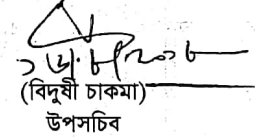 (বিদুষী চাকমা)
উপসচিব